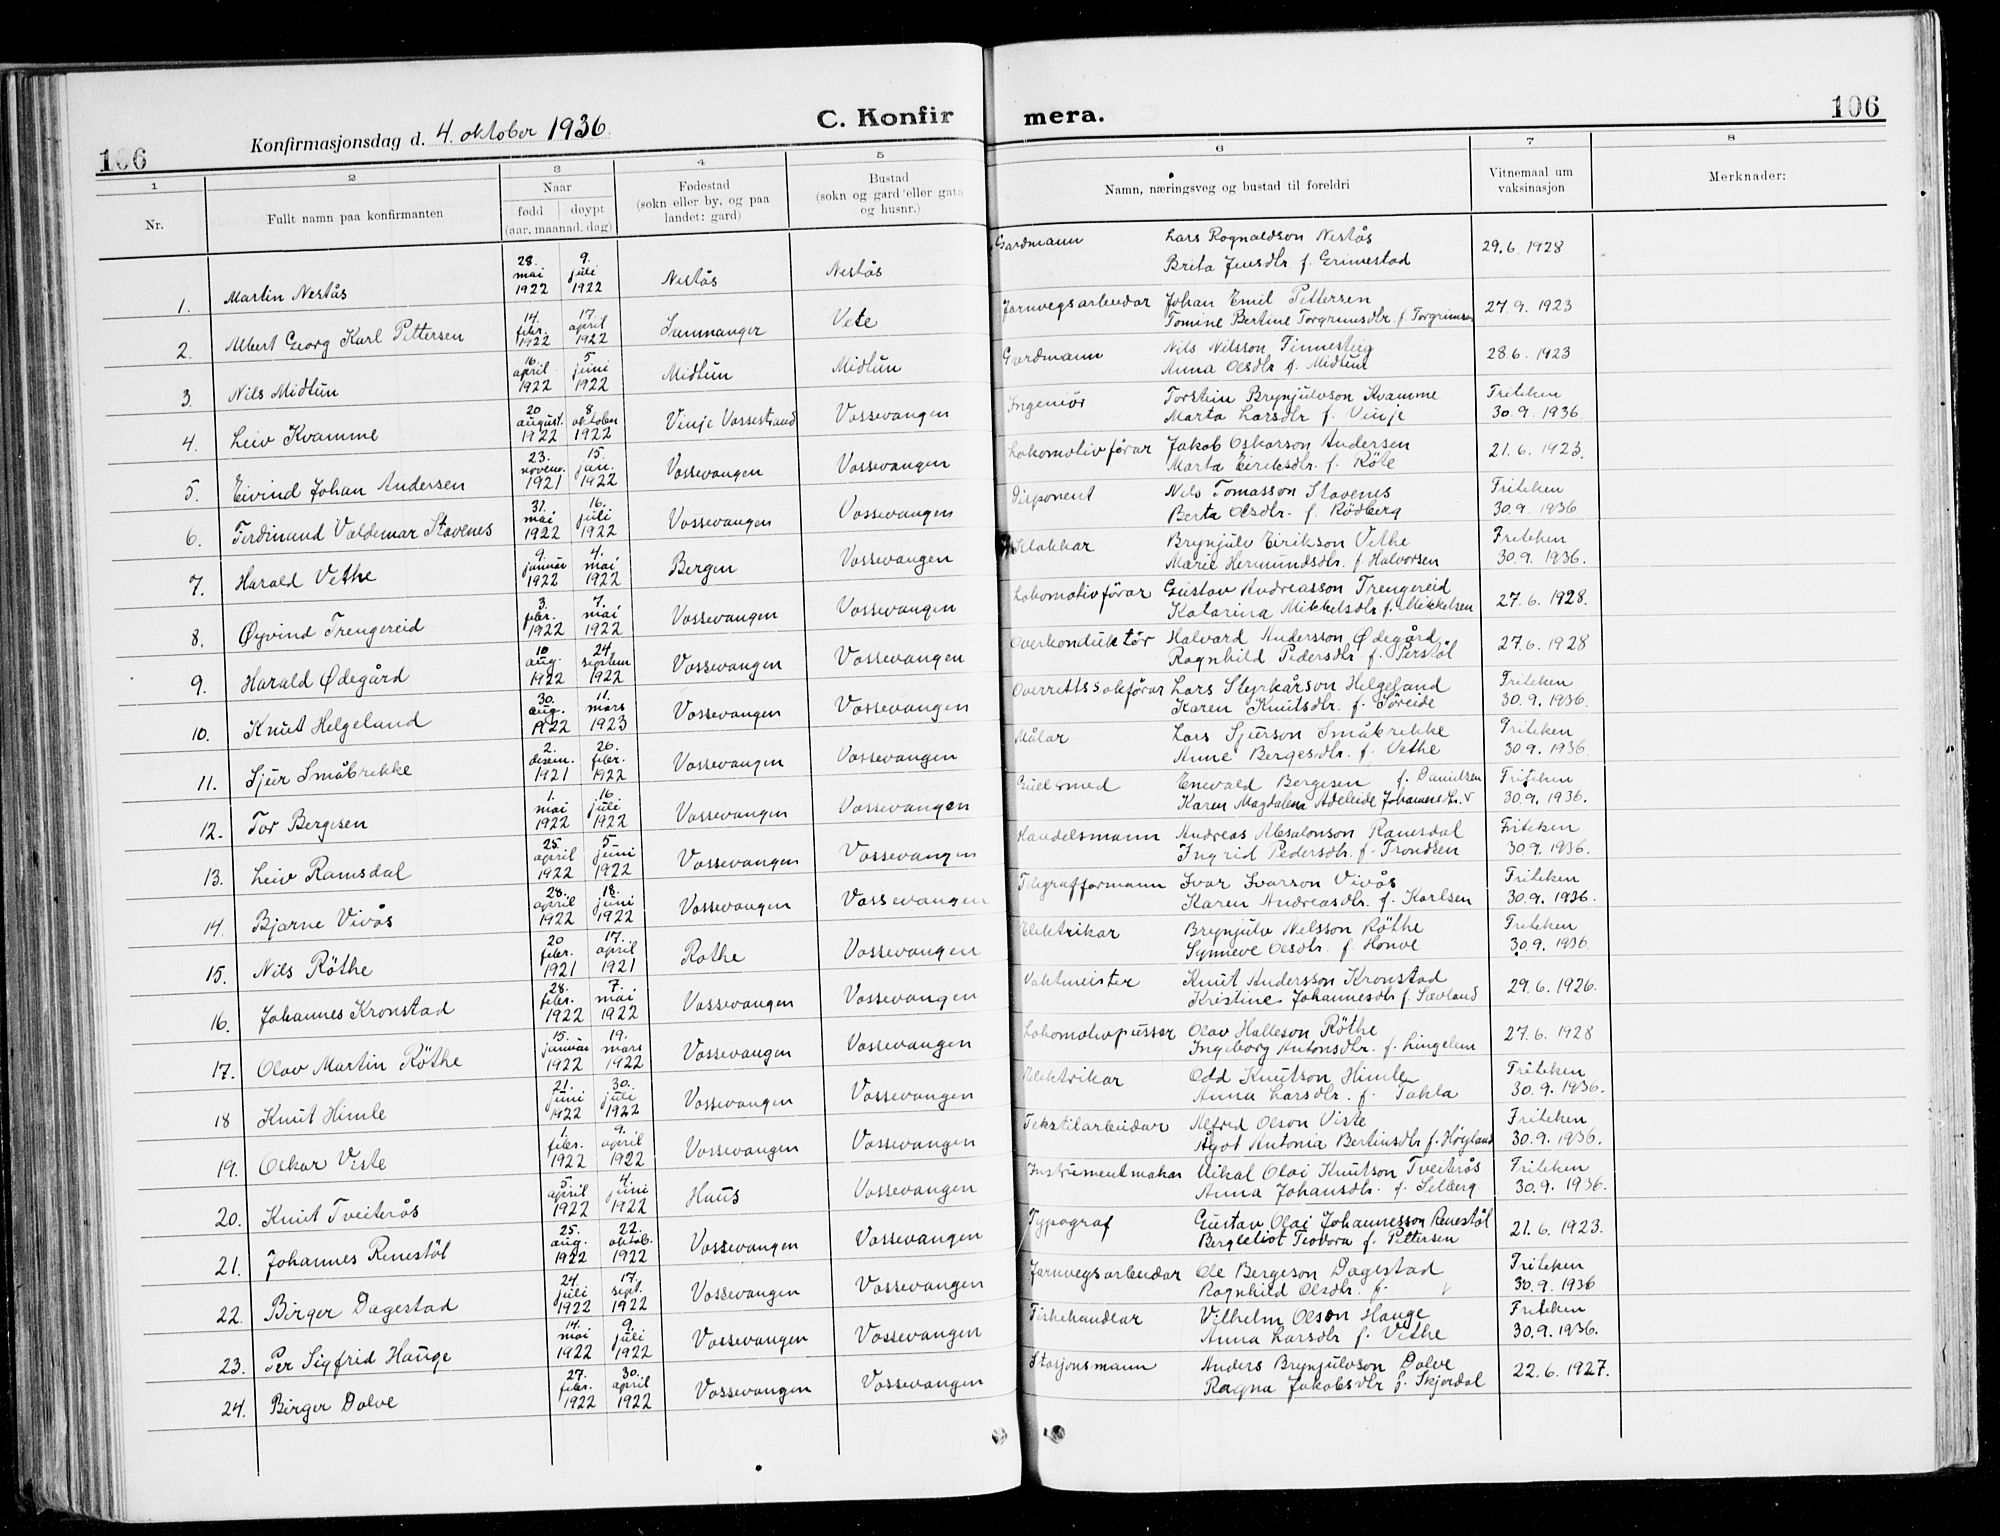 106
Konfirmasjonsdag d. 4. oktober 1936.
C. Konfir mera.
106
1 2 3 4 5 6 7 8
Nr.
Fullt namn paa konfirmanten
Naar
fødd døypt
(aar, maanad, dag)
Fødestad
(sokn eller by, og paa
landet: gard)
Bustad
(sokn og gard eller gata
og husnr.)
Namn, næringsveg og bustad til foreldri
Vitnemaal um
vaksinasjon
Merknader:
1. Martin Nestås 28. mai 1922 9. juli 1922 Nestås Nestås Gardmann Lars Rognaldson Nestås
Brita Jensdtr f. Grimestad 29.6 1928
2. Albert Georg Karl Pettersen 14. febr. 1922 17. april 1922 Samnanger Vete Jarnvegsarbeidar Johan Emil Pettersen
Tomine Bertine Torgrimsdtr f. Torgrimsen 27.9. 1923
3. Nils Midtun 16. april 1922 5. juni 1922 Midtun Midtun Gardmann Nils Nilsson Finnesteig
Anna Olsdtr g. Midtun 28.6. 1923
4. Leiv Kvamme 20 august. 1922 8. oktober 1922 Vinje Vossestrand Vossevangen Ingeniør Torstein Brynjulvson Kvamme
Marta Larsdtr. f. Vinje Friteken 30.9. 1936.
5. Eivind Johan Andersen 23. novem. 1921 15. jan. 1922 Vossevangen Vossevangen Lokomotivførar Jakob Oskarson Andersen
Marta Eiriksdtr. f. Röte 21.6. 1923.
6. Ferdinand Valdemar Stavenes 31. mai 1922 16. juli 1922 Vossevangen Vossevangen Disponent Nils Tomasson Stavenes
Berta Olsdtr. f. Rödberg Friteken 30.9. 1936
7. Harald Vethe 9. januar 1922 4. mai 1922 Bergen Vossevangen Klokkar Brynjulv Eirikson Vethe
Marie Hermundsdtr. f. Halvorsen Friteken 30.9. 1936.
8. Øyvind Trengereid 3. febr. 1922 7. mai 1922 Vossevangen Vossevangen Lokomotivførar Gustav Andreasson Trengereid
Katarina Mikkelsdtr f. Mikkelsen 27.6. 1928.
9. Harald Ødegård 10 aug. 1922 24. septem 1922 Vossevangen Vossevangen Overkonduktør Halvard Andersson Ødegård
Ragnhild Pedersdtr. f. Perstöl 27.6. 1928
10. Knut Helgeland 30. aug. 1922 11. mars 1923 Vossevangen Vossevangen Overrettssakførar Lars Styrkårson Helgeland
Karen Knutsdtr. f. Søreide Friteken 30.9. 1936.
11. Sjur Småbrekke 2. desem. 1921 26. febr. 1922 Vossevangen Vossevangen Målar Lars Sjurson Småbrekke
Anne Bergesdtr. f. Vethe Friteken 30.9. 1936.
12. Tor Bergesen 1. mai 1922 16. juli 1922 Vossevangen Vossevangen Gullsmed Enevald Bergesen f. Danielsen
Karen Magdalena Adeleide Johannesdtr. v Friteken 30.9. 1936.
13. Leiv Ramsdal 25. april 1922 5. juni 1922 Vossevangen Vossevangen Handelsmann Andreas Absalonson Ramsdal
Ingrid Pedersdtr. f. Trondsen Friteken 30.9. 1936.
14. Bjarne Vivås 28. april 1922 18. juni 1922 Vossevangen Vossevangen Telegrafformann Ivar Ivarson Vivås
Karen Andreasdtr. f. Karlsen Friteken 30.9. 1936.
15. Nils Röthe 20 febr. 1921 17. april 1921 Rothe Vossevangen Elektrikar Brynjulv Nelsson Röthe
Synneve Olsdtr. f Honve Friteken 30.9. 1936.
16. Johannes Kronstad 28. febr. 1922 7. mai 1922 Vossevangen Vossevangen Vaktmeister Knut Andersson Kronstad
Kristine Johannesdtr f. Sævland 29.6. 1926.
17. Olav Martin Röthe 15. januar 1922 19. mars 1922 Vossevangen Vossevangen Lokomotivpussar Olav Halleson Röthe
Ingeborg Antonsdtr. f. Lingelem 27.6. 1928
18 Knut Himle 21. juni 1922 30. juli 1922 Vossevangen Vossevangen Elektrikar Odd Knutson Himle
Anna Larsdtr. f. Takla Friteken 30.9. 1936.
19. Oskar Viste 1. febr. 1922 9. april 1922 Vossevangen Vossevangen Tekstilarbeidar Alfred Olson Viste
Ågot Antonia Bertinsdtr f. Høyland Friteken 30.9. 1936.
20. Knut Tveiterås 5. april 1922 4. juni 1922 Haus Vossevangen Instrumentmakar Mikal Olai Knutson Tveiterås
Anna Johansdtr. f. Selberg Friteken 30.9. 1936.
21. Johannes Renestöl 25. aug. 1922 22. oktob. 1922 Vossevangen Vossevangen Typograf Gustav Olai Johannesson Renestöl
Bergletiot Teodora f. Pettersen 21.6. 1923.
22. Birger Dagestad 24. juli 1922 17. sept. 1922 Vossevangen Vossevangen Jarnvegsarbeidar Ole Bergeson Dagestad
Ragnhild Olsdtr. f. v Friteken 30.9. 1936
23. Per Sigfrid Hauge 14. mai 1922 9. juli 1922 Vossevangen Vossevangen Fiskehandlar Vilhelm Olson Hauge
Anna Larsdtr f. Vethe Friteken 30.9. 1936.
24. Birger Dolve 27. febr. 1922 30. april 1922 Vossevangen Vossevangen Stasjonsmann Anders Brynjulvson Dolve
Ragna Jakobsdtr f. Skjerdal 22.6. 1927.